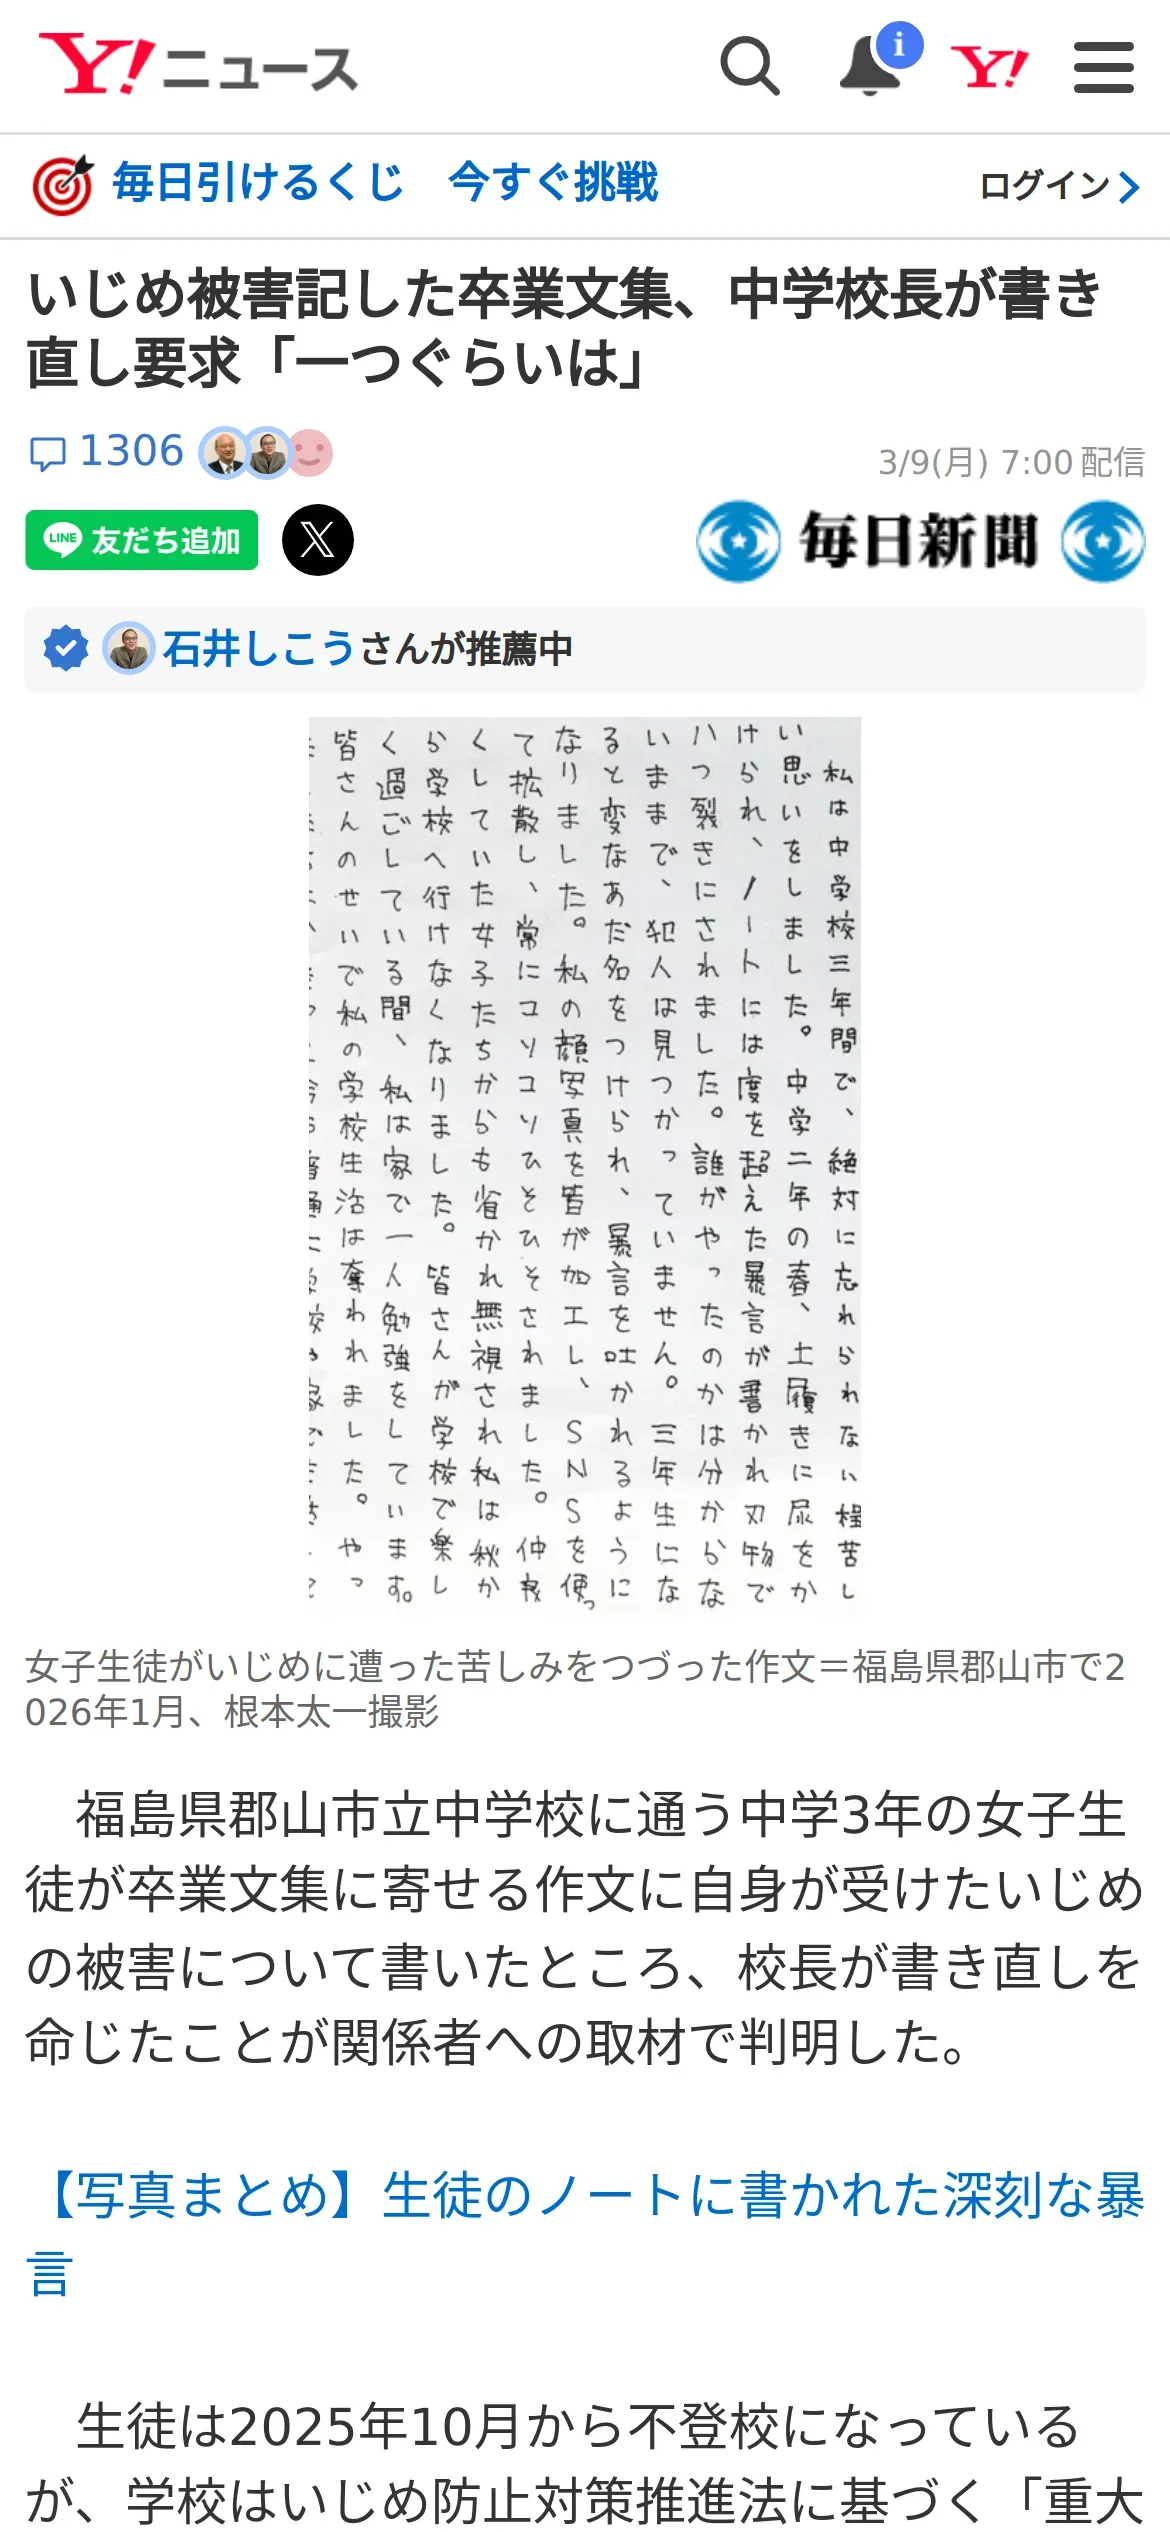 Y!ニュース
i
Y!
毎日引けるくじ　今すぐ挑戦
ログイン
いじめ被害記した卒業文集、中学校長が書き
直し要求「一つぐらいは」
1306
3/9(月) 7:00配信
LINE 友だち追加
X
毎日新聞
石井しこうさんが推薦中
私は中学校三年間で、絶対に忘れられない程苦し
い思いをしました。中学二年の春、土履きに尿をか
けられ、ノートには度を超えた暴言が書かれ刃物で
八つ裂きにされました。誰がやったのかは分からな
いままで、犯人は見つかっていません。三年生にな
ると変なあだ名をつけられ、暴言を吐かれるように
なりました。私の顔写真を皆が加工し、SNSを使っ
て拡散し、常にコソコソひそひそされました。仲良
くしていた女子たちからも省かれ無視され私は秋か
ら学校へ行けなくなりました。皆さんが学校で楽し
く過ごしている間、私は家で一人勉強をしています。
皆さんのせいで私の学校生活は奪われました。やっ
女子生徒がいじめに遭った苦しみをつづった作文＝福島県郡山市で2
026年1月、根本太一撮影
福島県郡山市立中学校に通う中学3年の女子生
徒が卒業文集に寄せる作文に自身が受けたいじめ
の被害について書いたところ、校長が書き直しを
命じたことが関係者への取材で判明した。
【写真まとめ】生徒のノートに書かれた深刻な暴
言
生徒は2025年10月から不登校になっている
が、学校はいじめ防止対策推進法に基づく「重大